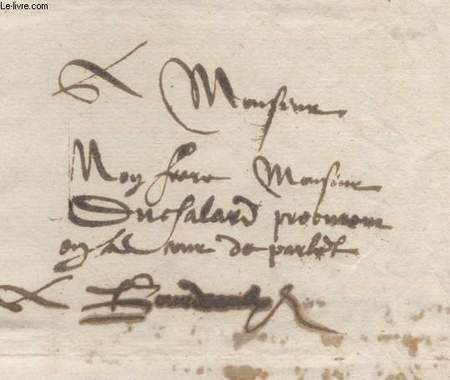 Le-livre.com
A Monsieur
Mon frere Monsieur
Duchalard procureur
en la cour de parlet
A Bourdeaulx